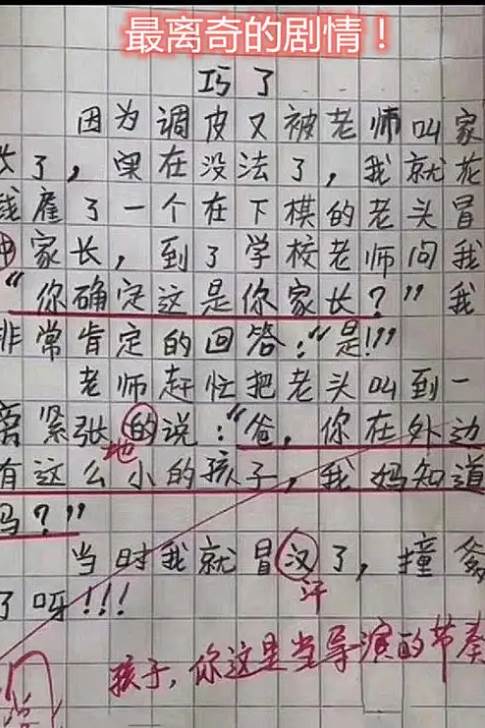 最离奇的剧情！
巧了
因为调皮又被老师叫家
长了，实在没法了，我就花
钱雇了一个在下棋的老头冒
家长，到了学校老师问我
“你确定这是你家长？”我
非常肯定的回答：“是!”
老师赶忙把老头叫到一
旁紧张的说：“爸，你在外边
地
有这么小的孩子，我妈知道
吗？”
当时我就冒汉了，撞爹
汗
了呀!!!
孩子，你这是当导演的节奏